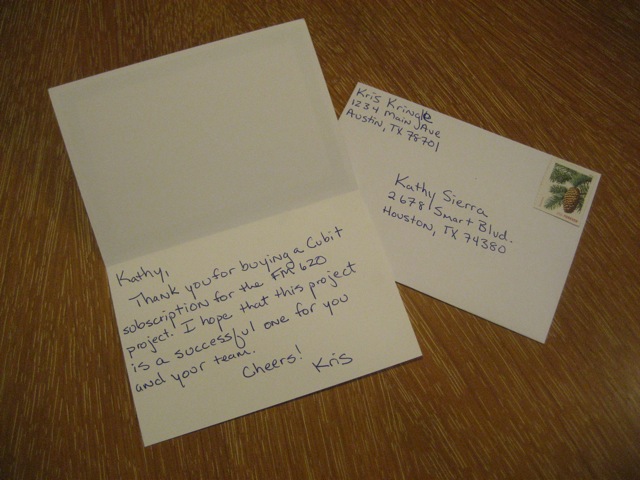 Kris Kringle
1234 Main Ave
Austin, TX 78701
Kathy Sierra
2678 Smart Blvd.
Houston, TX 74380
Kathy,
Thank you for buying a Cubit
subscription for the FM 620
project. I hope that this project
is a successful one for you
and your team.
Cheers!
Kris